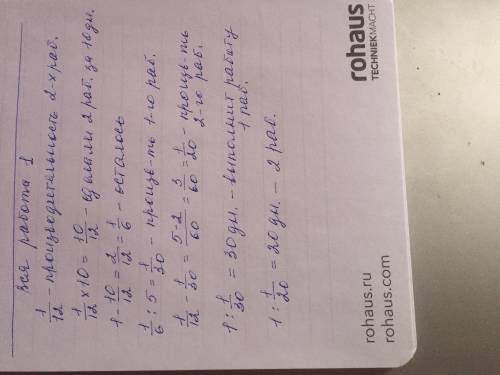 Вся работа 1
1/12 - производительность 2-х раб.
1/12 x 10 = 10/12 - сделали 2 раб. за 10 дн.
1 - 10/12 = 2/12 = 1/6 - осталось
1/6 : 5 = 1/30 - произв-ть 1-го раб.
1/12 - 1/30 = 5-2/60 = 3/60 = 1/20 - произв-ть
2-го раб.
1 : 1/30 = 30 дн. - выполнит работу
1 раб.
1 : 1/20 = 20 дн. - 2 раб.
rohaus
TECHNIEKMACHT
rohaus.ru
rohaus.com